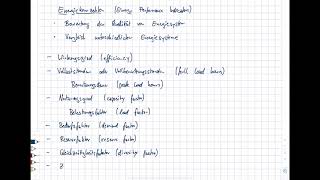 Energiekennzahlen (Energy Performance Indicators)
• Bewertung der Qualität von Energiesystemen
• Vergleich unterschiedlicher Energiesysteme
- Wirkungsgrad (efficiency)
- Vollaststunden oder Vollbenutzungsstunden (full load hours)
Benutzungsdauer (peak load hours)
- Nutzungsgrad (capacity factor)
Belastungsfaktor (load factor)
- Bedarfsfaktor (demand factor)
- Reservefaktor (reserve factor)
- Gleichzeitigkeitsfaktor (diversity factor)
-